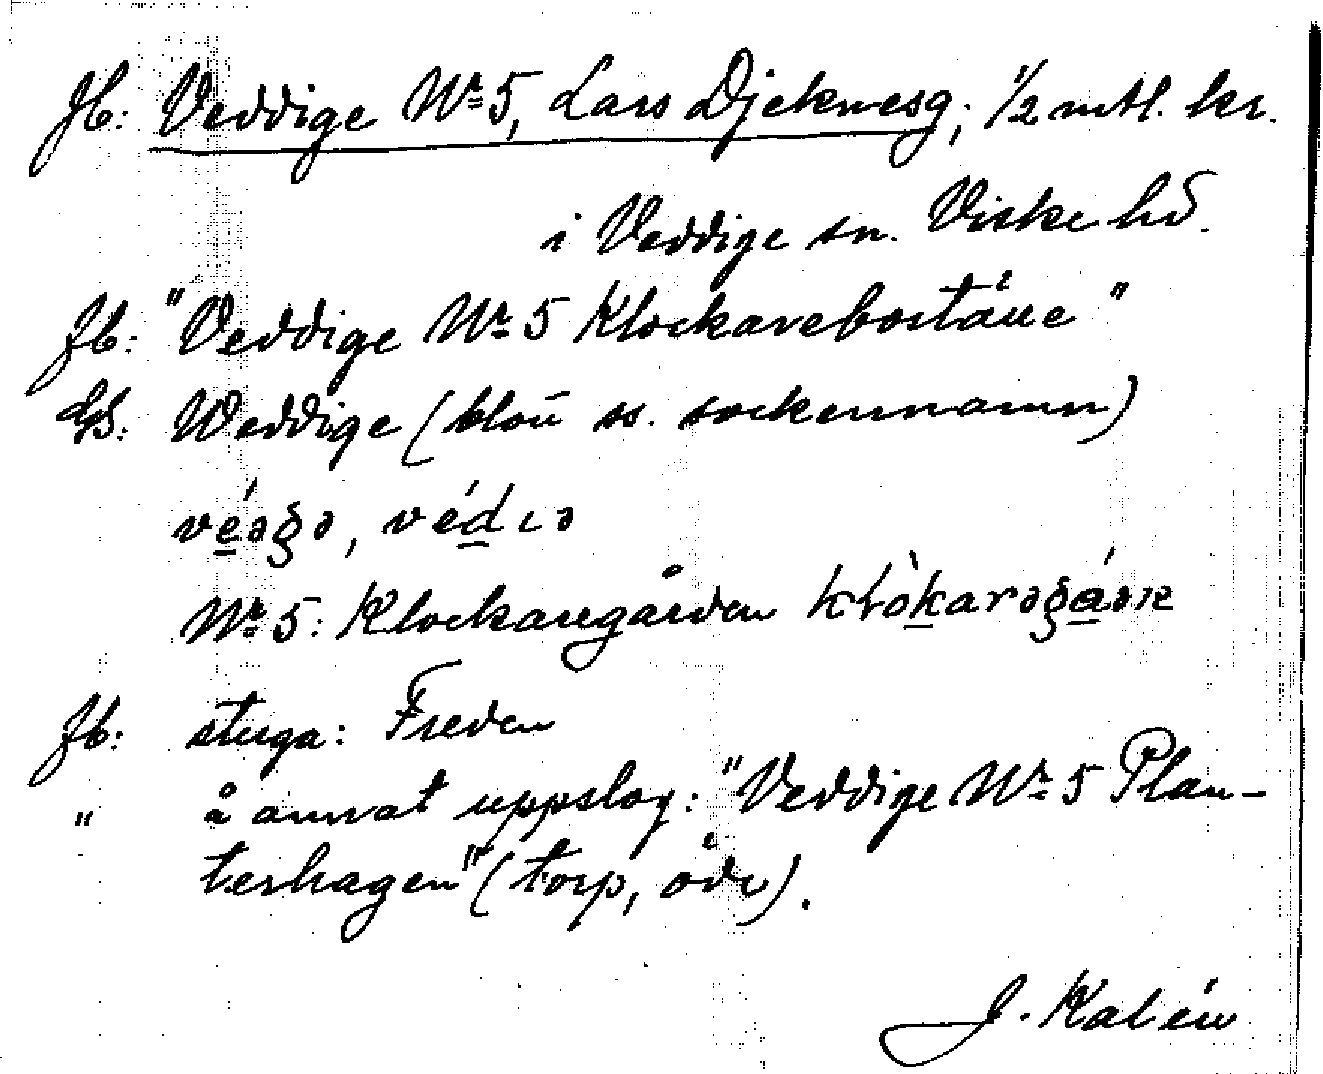 Jb: Veddige Nr 5, Lars Djeknesg; 1/2 mtl. kr.
i Veddige sn. Viske hd.
Jb: "Veddige Nr 5 Klockareboställe"
GS: Weddige (blott ss. sockennamn)
véəgə, védıə
Nr 5: Klockaregården klòkarəgáən
Jb: stuga: Freden
" å annat uppslag: "Veddige Nr 5 Plan-
terhagen" (torp, öde).
J. Kalén